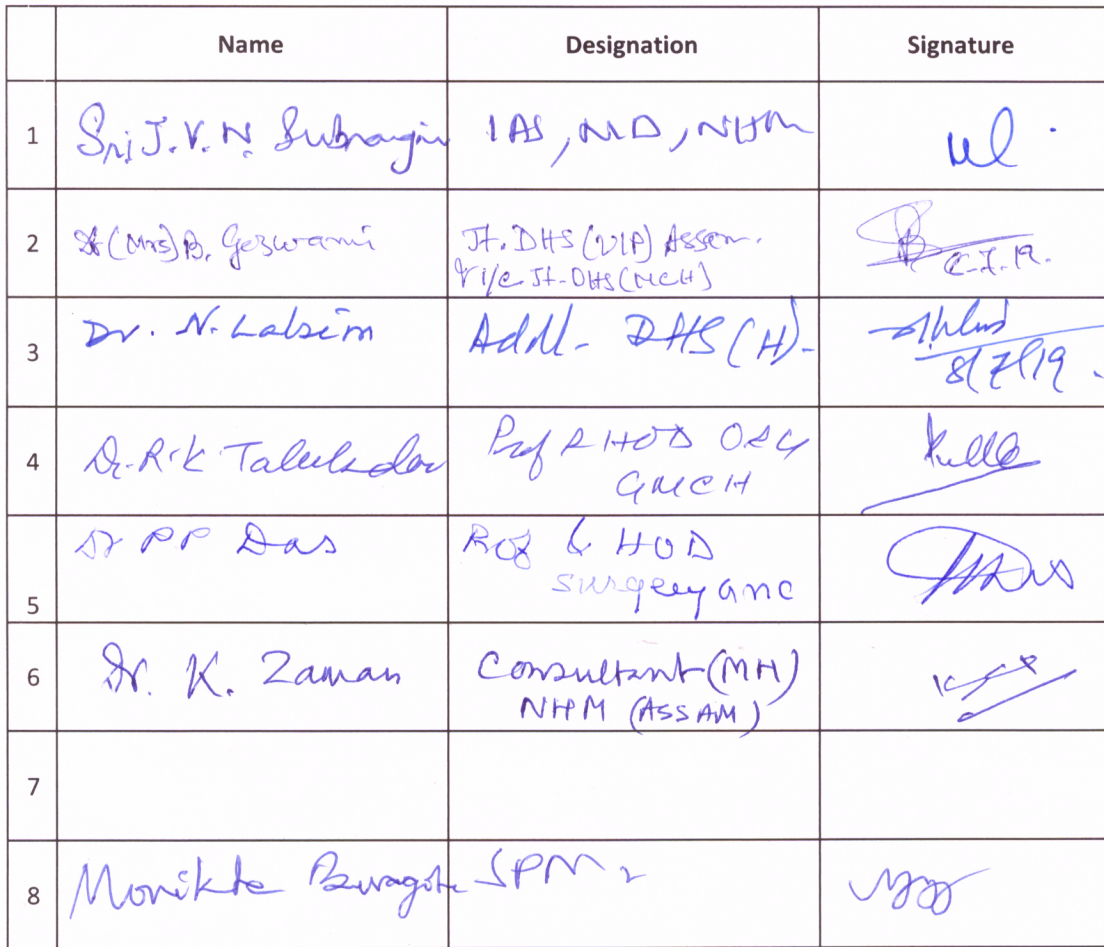 Name Designation Signature
1 Sri J.V.N. IAS, MD, NHM
2 Dr (Mrs) B. Goswami Jt. DHS (VIP) Assam.
i/c Jt-DHS (MCH)
3 Dr. N. Addl- DHS (H)-
8/7/19.
4 Dr. R.K Talukdar Prof & HOD O&G
GMCH
5 Dr PP Das Prof & HOD
Surgery
6 Dr. K. Zaman Consultant (MH)
NHM (ASSAM)
7
8 SPM